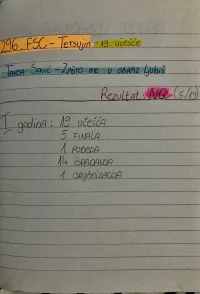 296. FSC - Tetsujin - 19. učešće
- Tanja Savić - Zašto me u obraz ljubiš
Rezultat: NQ (5/19)
I godina: 19 učešća
5 finala
1 pobeda
14 ispadanja
1 organizacija